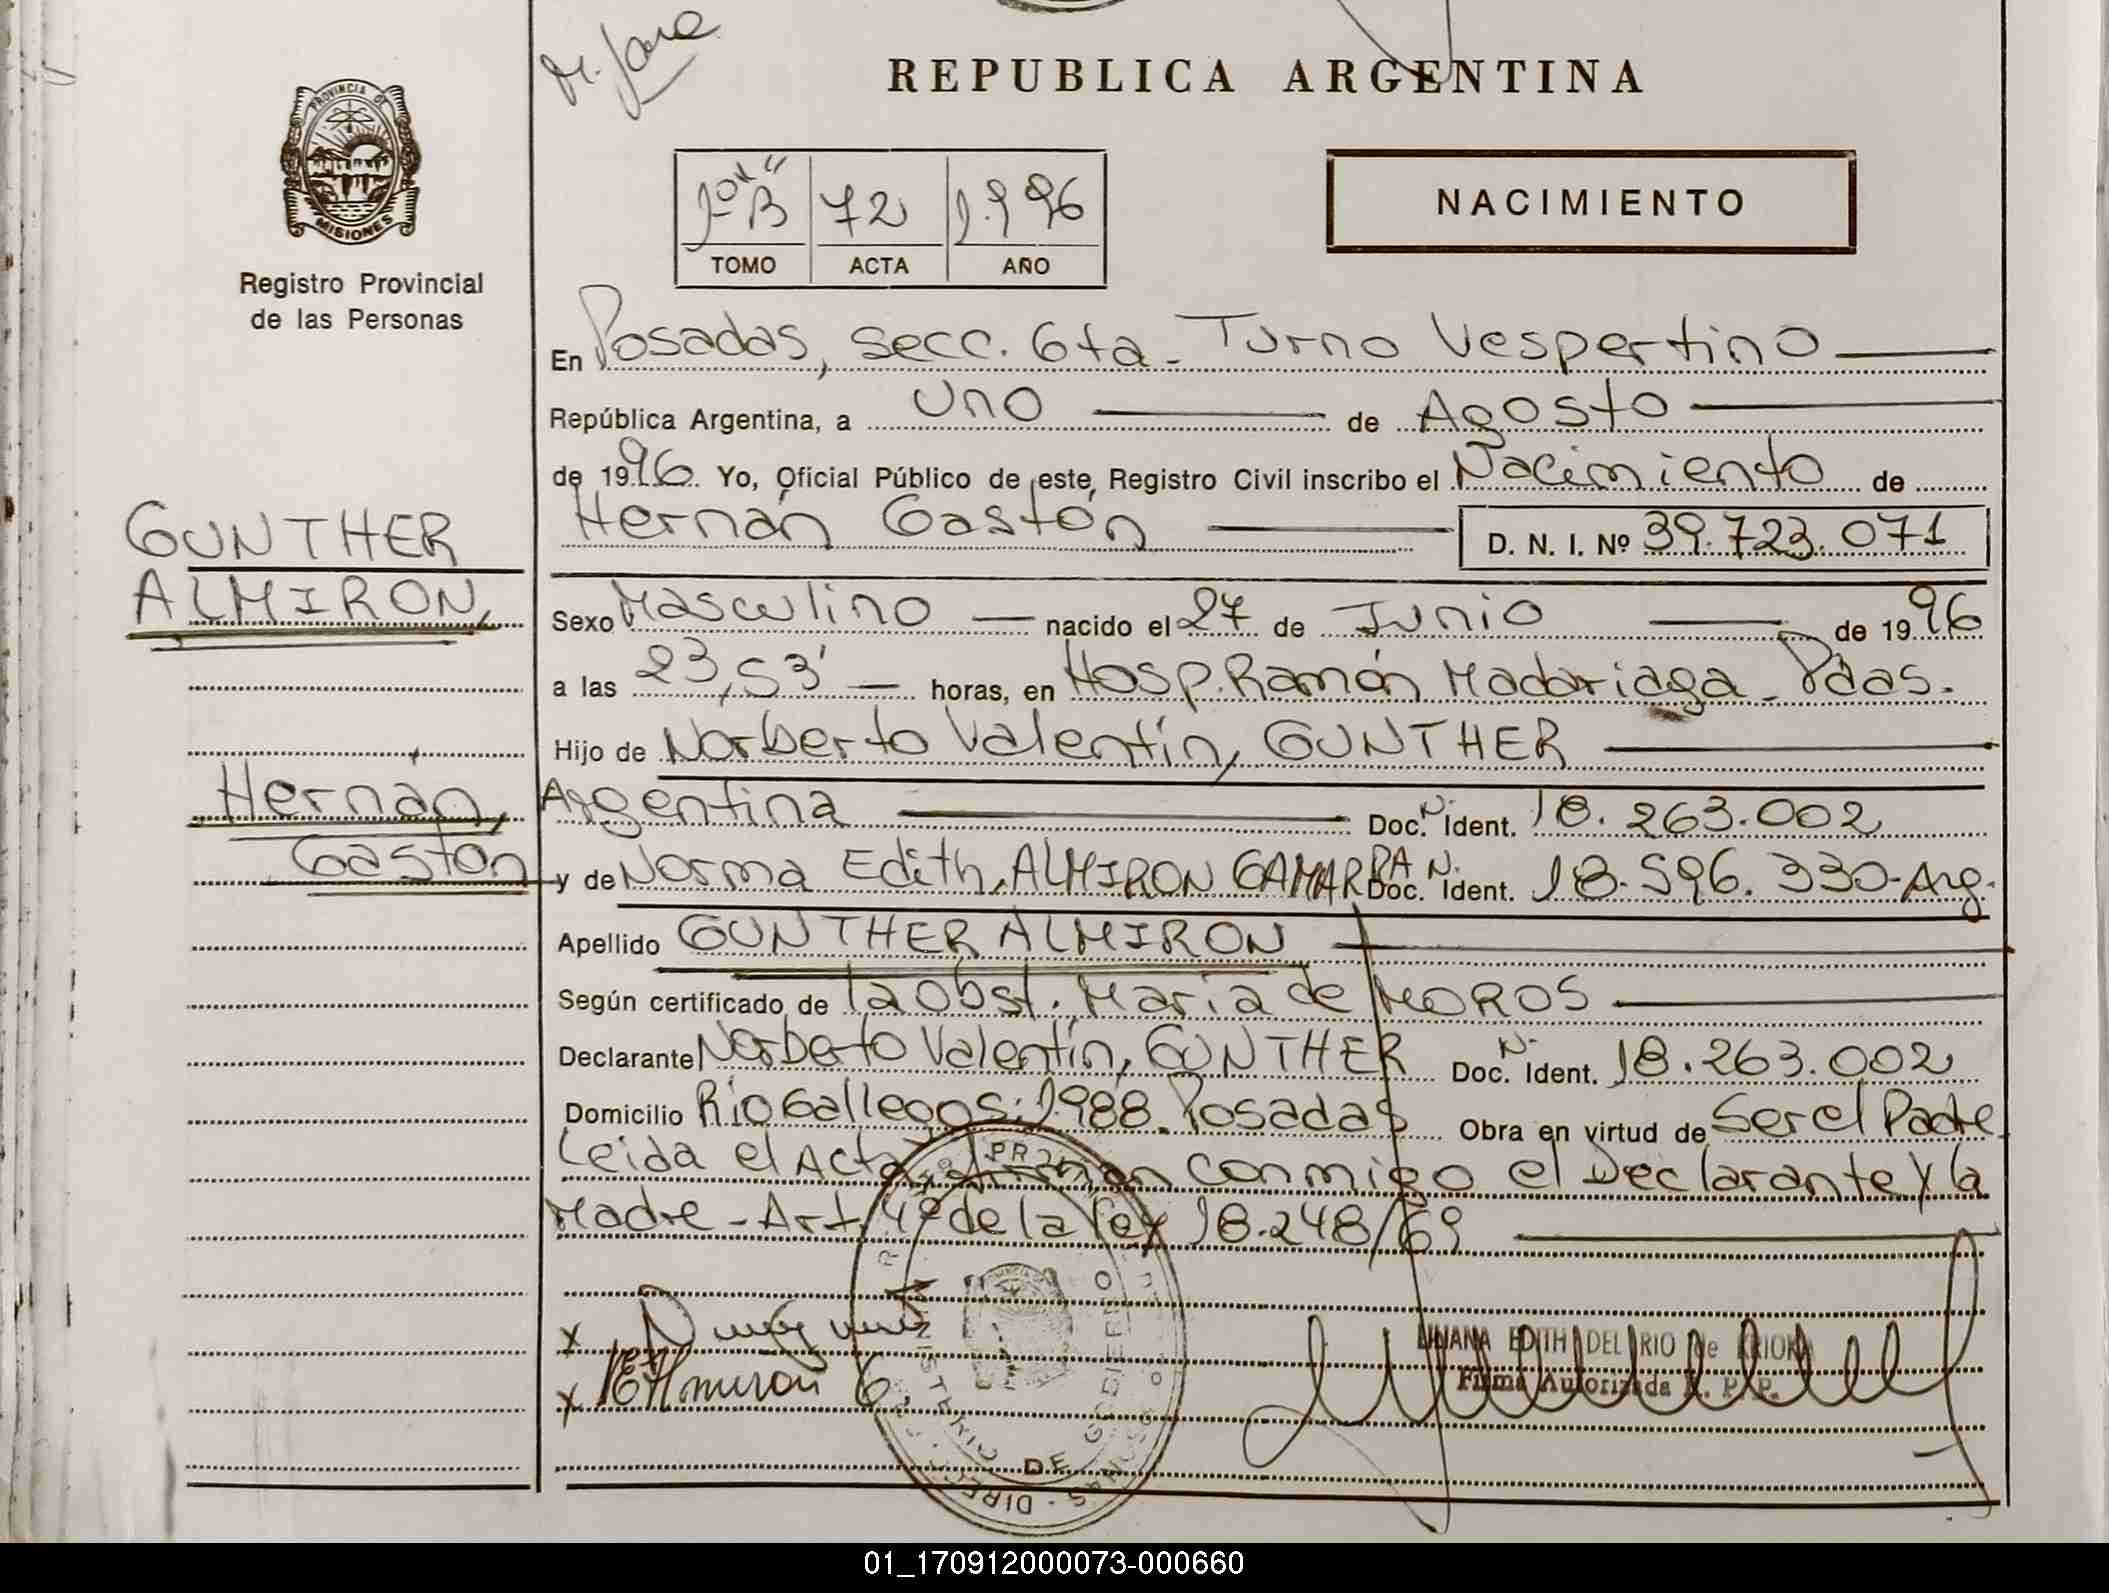 M. Jara
REPUBLICA ARGENTINA
PROVINCIA DE
MISIONES
Registro Provincial
de las Personas
1º "B" 72 1.996
TOMO ACTA AÑO
NACIMIENTO
En Posadas, secc. 6ta - Turno Vespertino
República Argentina, a Uno de Agosto
de 1996. Yo, Oficial Público de este Registro Civil inscribo el Nacimiento de
Hernán Gastón D. N. I. Nº 39.723.071
GUNTHER
ALMIRON,
Hernán,
Gastón
Sexo Masculino nacido el 27 de Junio de 1996
a las 23,53' horas, en Hosp. Ramón Madariaga - Pdas.
Hijo de Norberto Valentín, GUNTHER
Argentina Doc. N. Ident. 18.263.002
y de Norma Edith, ALMIRON GAMARRA Doc. N. Ident. 18.596.330-Arg.
Apellido GUNTHER ALMIRON
Según certificado de la Obst. María de MOROS
Declarante Norberto Valentín, GUNTHER Doc. N. Ident. 18.263.002
Domicilio Río Gallegos: 1.988. Posadas Obra en virtud de Ser el Padre
Leida el Acta, firman conmigo el Declarante y la
Madre - Art. 4º de la Ley 18.248/69
x
x NEAlmiron G.
LILIANA EDITH DEL RIO de
Firma Autorizada R. P. P.
MINISTERIO DE GOBIERNO
01_170912000073-000660